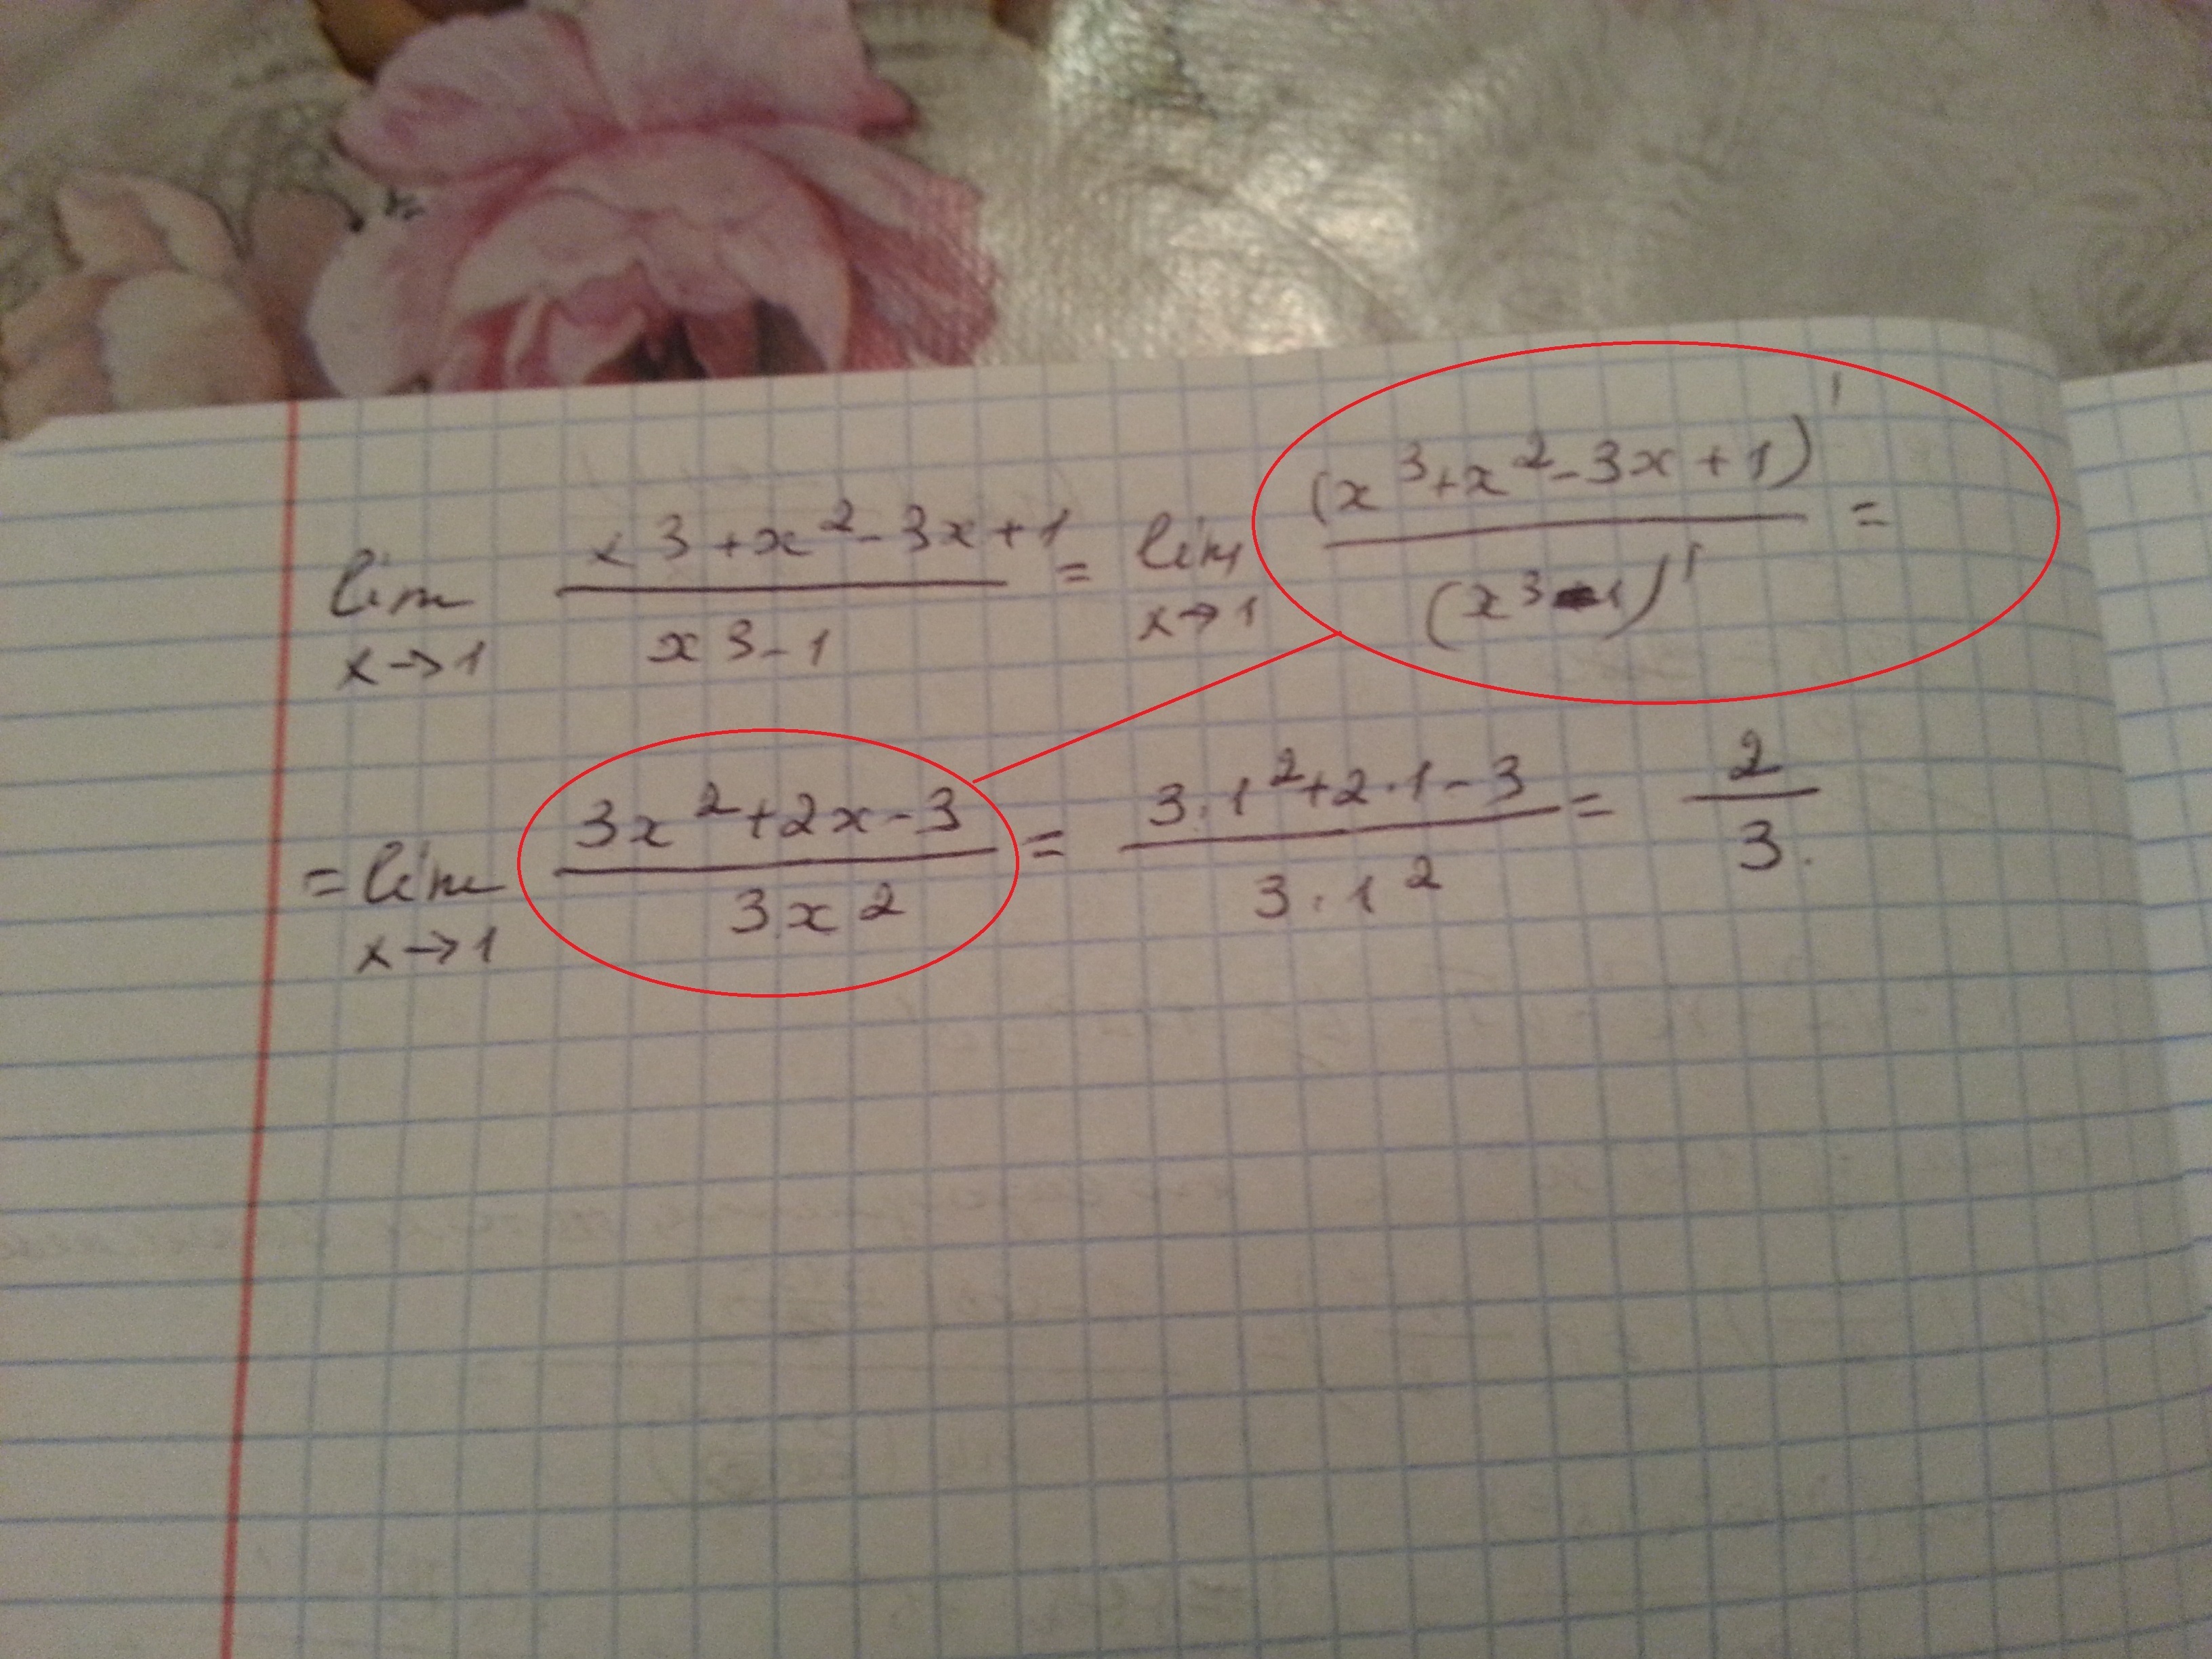 lim x→1 (x³+x²-3x+1)/(x³-1) = lim x→1 (x³+x²-3x+1)'/(x³-1)' =
= lim x→1 (3x²+2x-3)/(3x²) = (3·1²+2·1-3)/(3·1²) = 2/3.